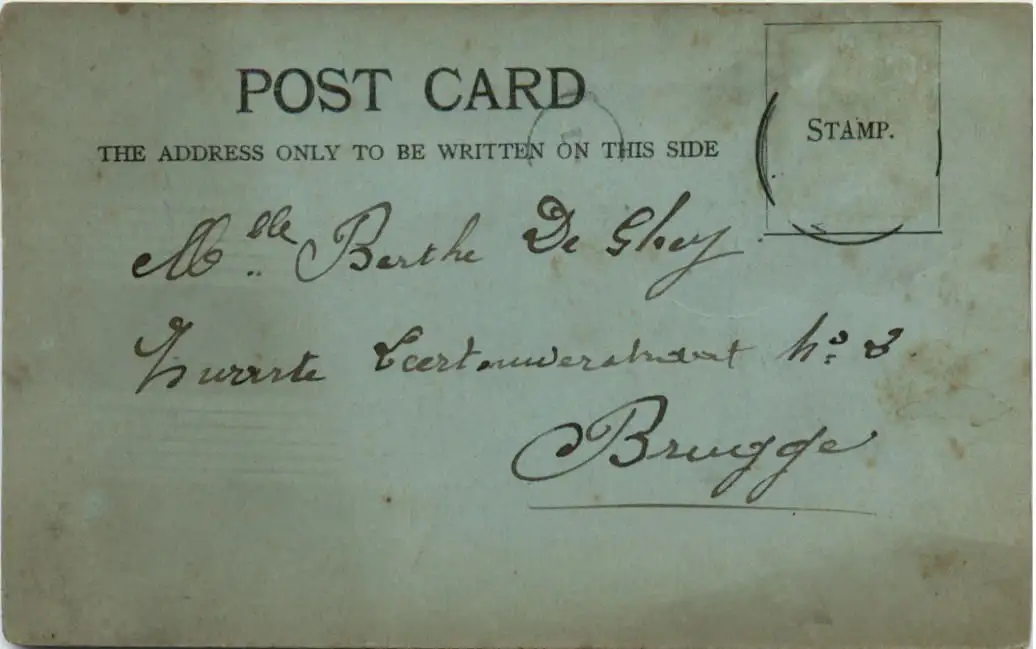 POST CARD
THE ADDRESS ONLY TO BE WRITTEN ON THIS SIDE
STAMP.
Mlle Berthe De Ghey
Zwarte Leertouwerstraat No
Brugge